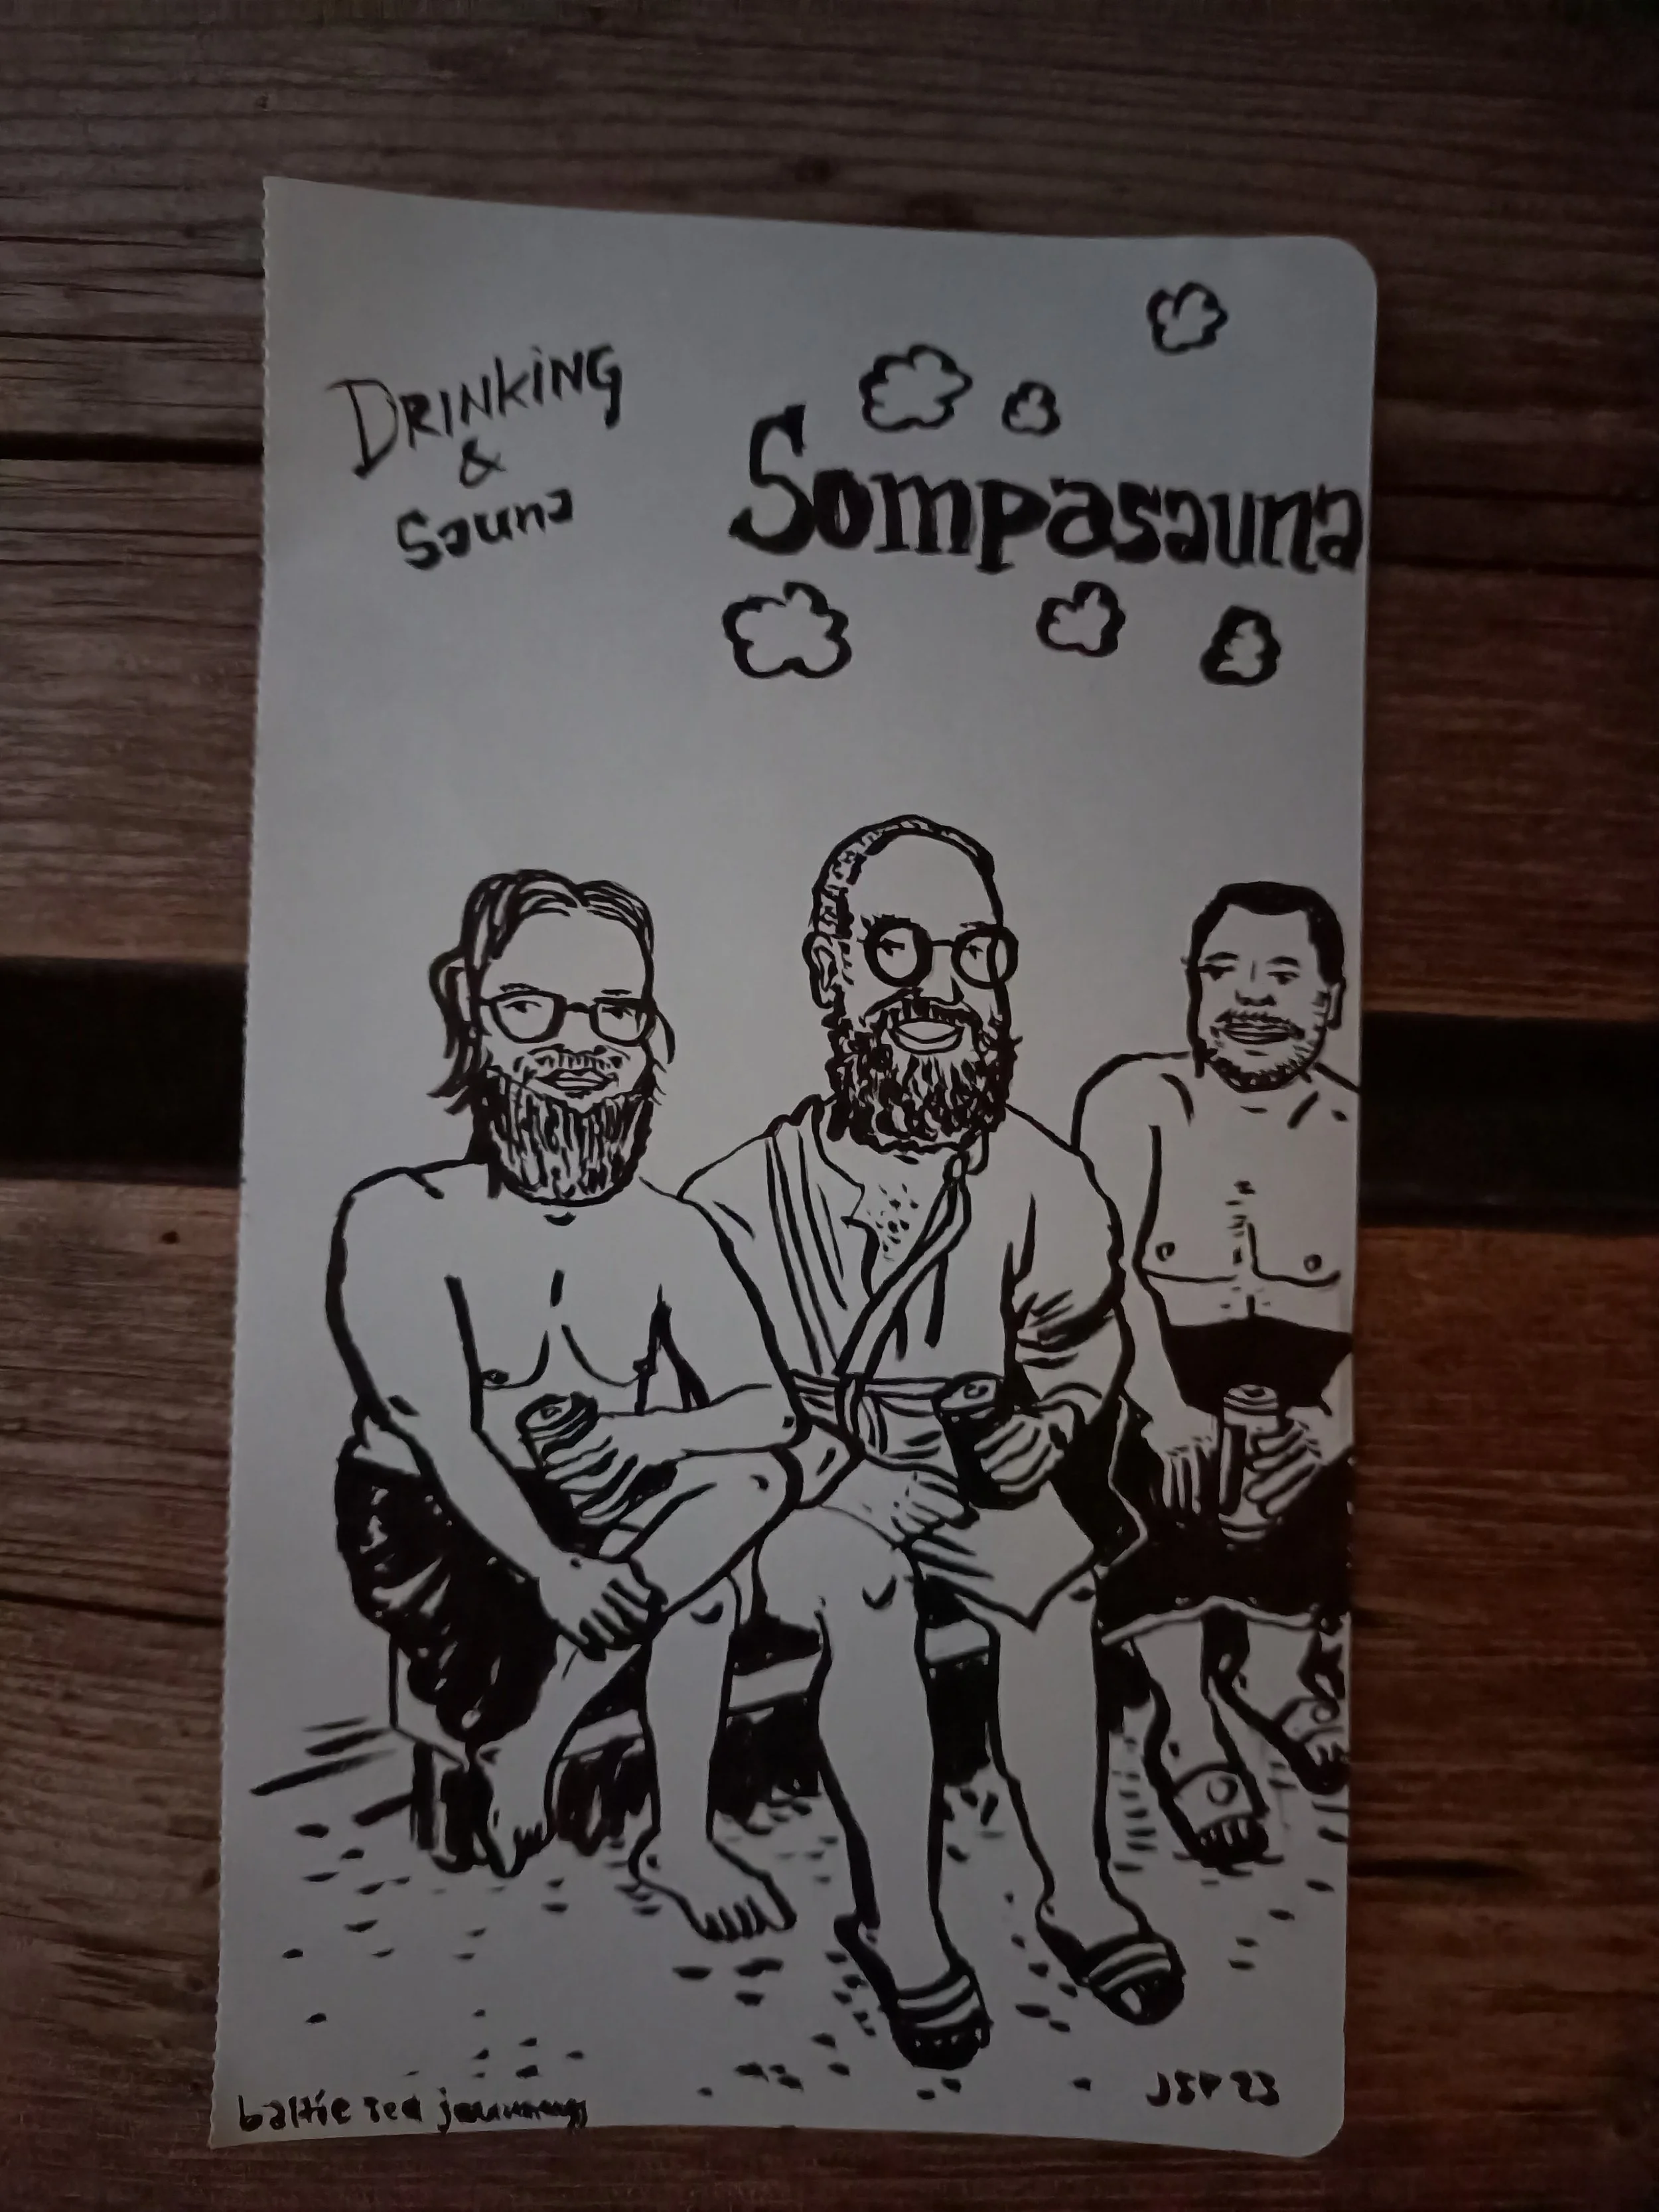 DRINKING
&
Sauna
Sompasauna
baltic sea
JSP 23